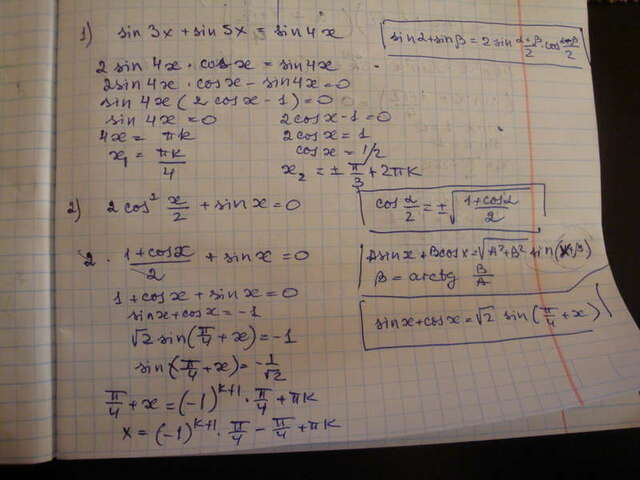 1) sin 3x + sin 5x = sin 4x
sinα + sinβ = 2 sin (α+β)/2 · cos (α-β)/2
2 sin 4x · cos x = sin 4x
2 sin 4x · cos x - sin 4x = 0
sin 4x (2 cos x - 1) = 0
sin 4x = 0 2 cos x - 1 = 0
4x = πk 2 cos x = 1
x₁ = πk/4 cos x = 1/2
x₂ = ± π/3 + 2πk
2) 2 cos² x/2 + sin x = 0
cos α/2 = ± √((1+cosα)/2)
2 · (1+cos x)/2 + sin x = 0
Asinx + Bcosx = √(A²+B²) sin(x+β)
β = arctg B/A
1 + cos x + sin x = 0
sinx + cosx = -1
sinx + cosx = √2 sin(π/4 + x)
√2 sin(π/4 + x) = -1
sin(π/4 + x) = -1/√2
π/4 + x = (-1)^(k+1) · π/4 + πk
x = (-1)^(k+1) · π/4 - π/4 + πk